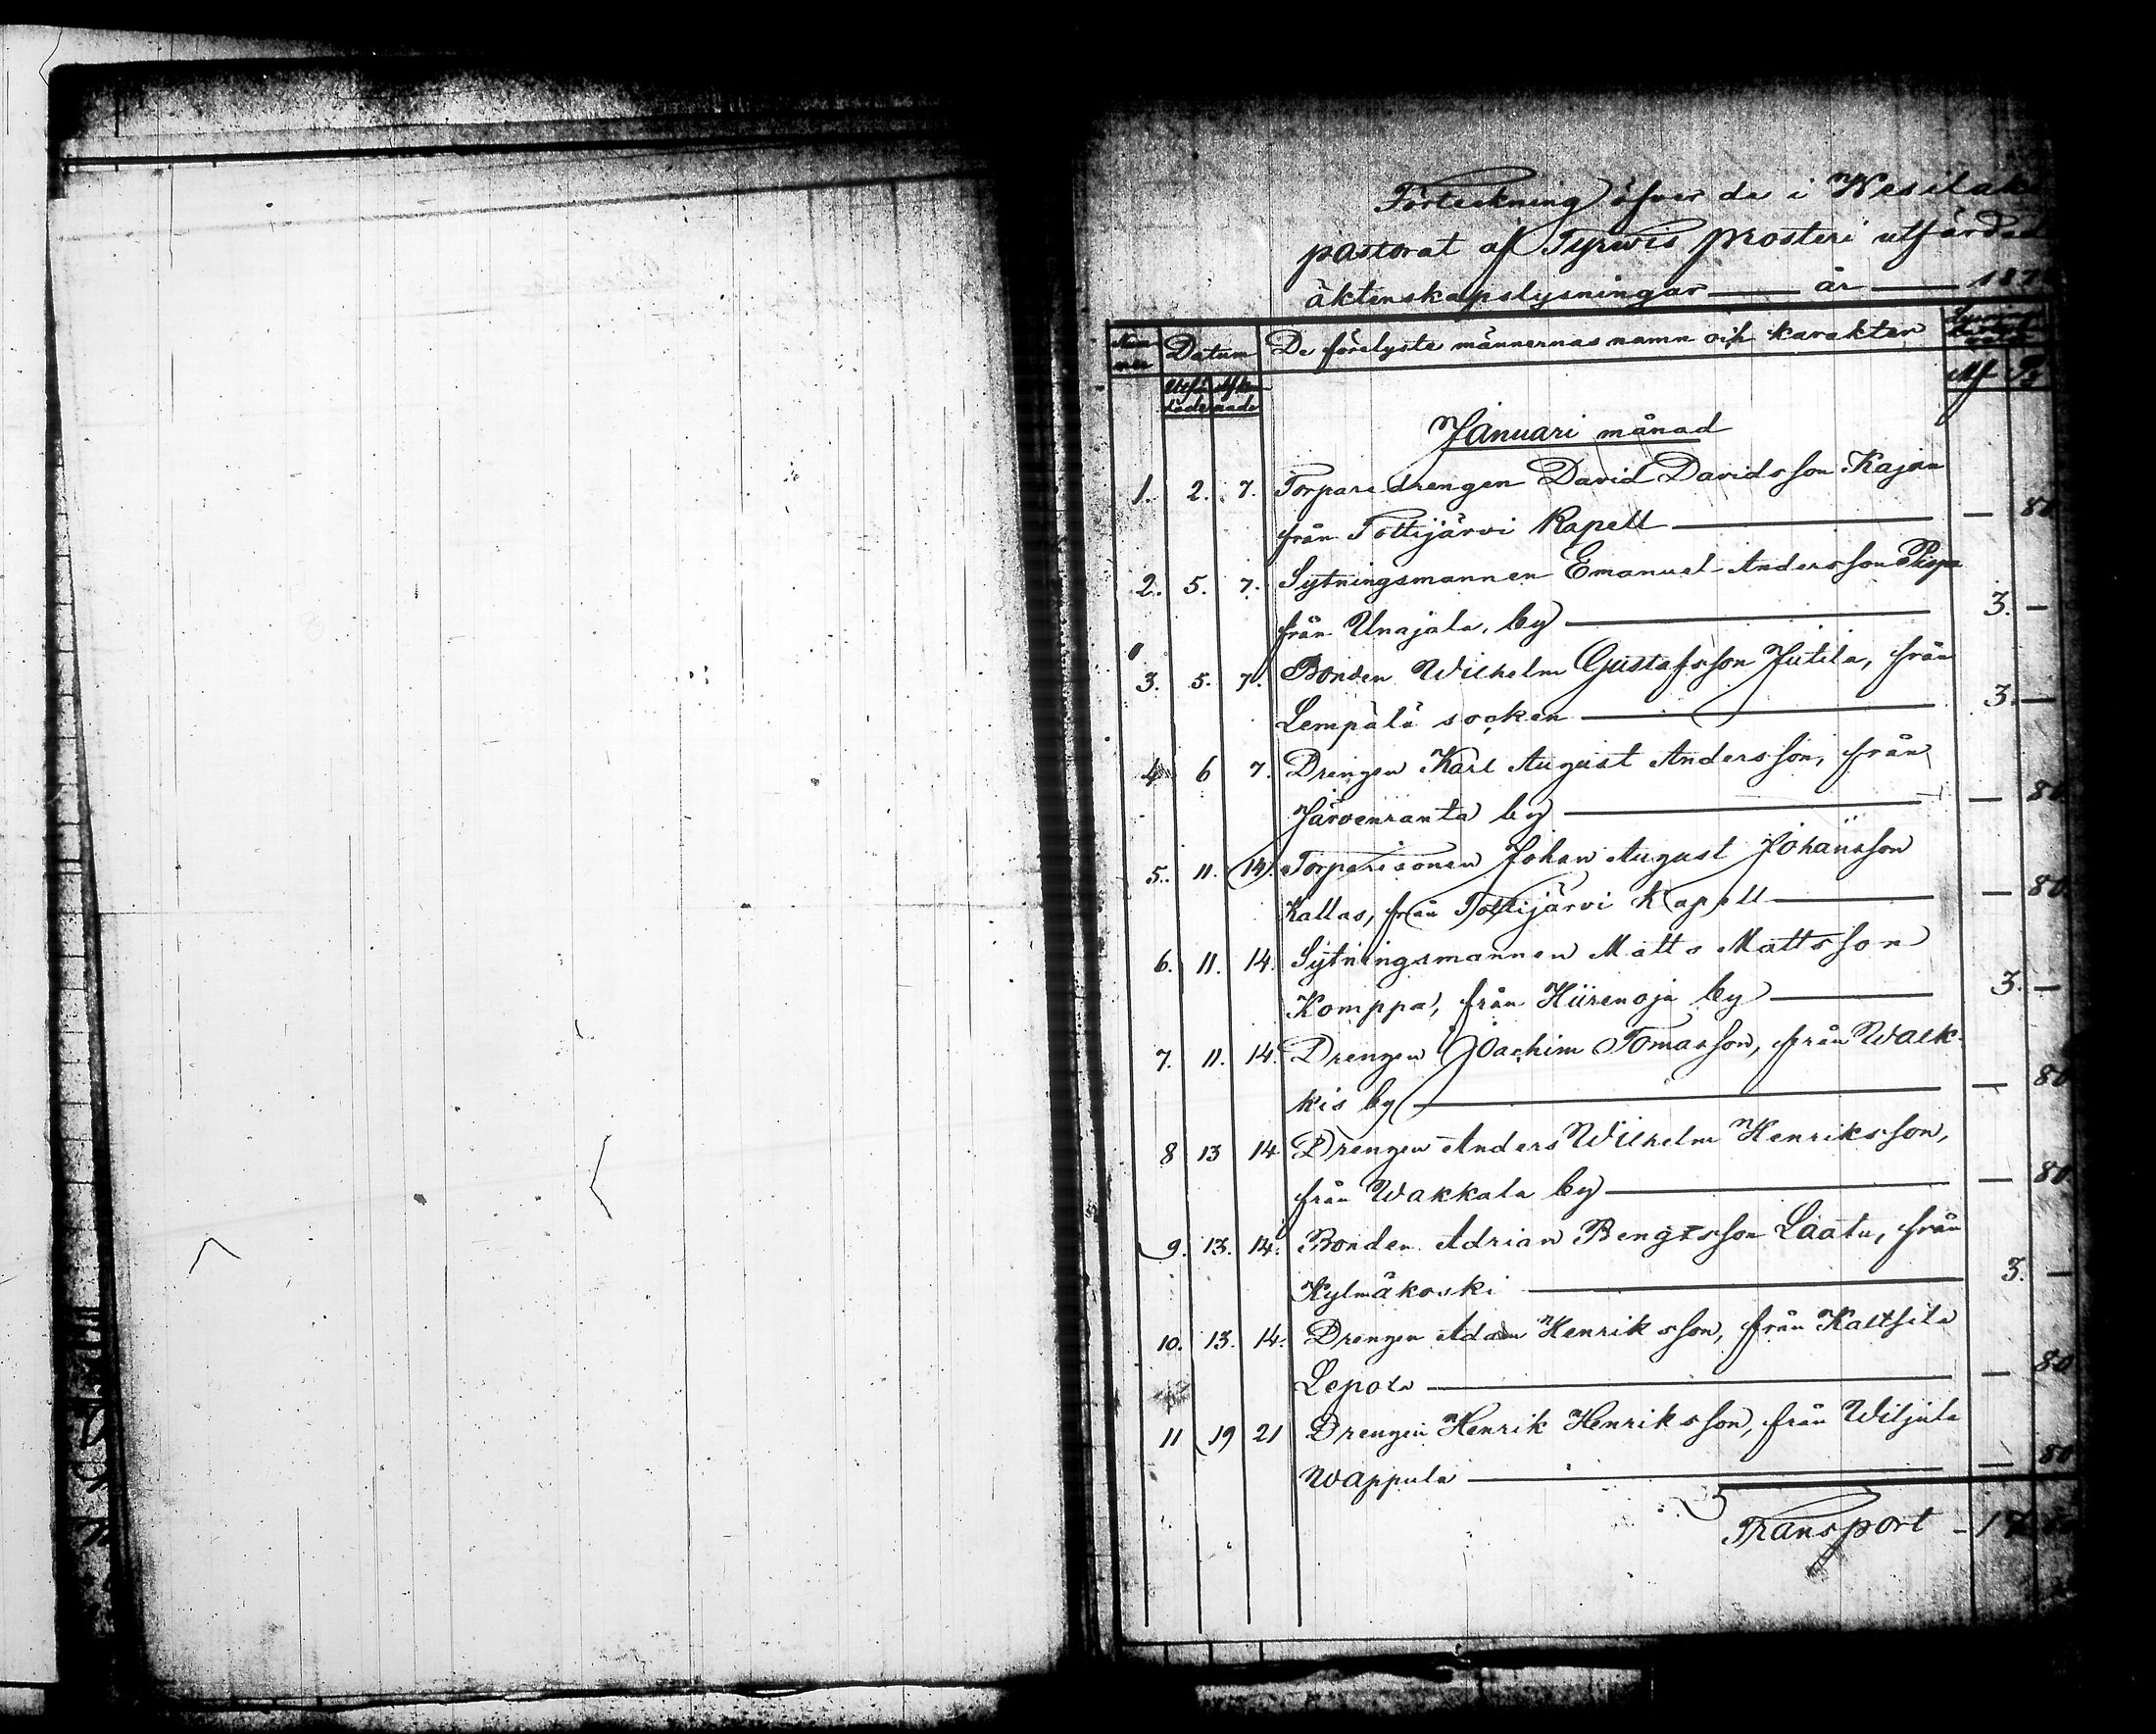 Förteckning öfver de i Wesilaks
pastorat af Tyrwis prosteri utfärdade
äktenskapslysningar — år — 187
Num-
mer
Datum
De förelyste männernas namn och karakter
Mf Pi
Januari månad
1. 2. 7. Torparedrengen David Davidsson Kajan
från Tottijärvi Kapell — — 80
2. 5. 7. Sytningsmannen Emanuel Andersson Pispa
från Unajala by — 3. —
3. 5. 7. Bonden Wilhelm Gustafsson Jutila, från
Lempälä socken — 3. —
4 6 7. Drengen Karl August Andersson, från
Järvenranta by — — 80
5. 11. 14. Torparesonen Johan August Johansson
Kallas, från Tottijärvi Kapell — — 80
6. 11. 14. Sytningsmannen Matts Mattsson
Komppa, från Hiirenoja by — 3. —
7. 11. 14. Drengen Joachim Tomasson, från Walk-
kis by — — 80
8 13 14 Drengen Anders Wilhelm Henriksson,
från Wakkala by — — 80
9. 13. 14. Bonden Adrian Bengtsson Laatu, från
Kylmäkoski — 3. —
10. 13. 14. Drengen Adam Henriksson, från Kaltsila
Lepola — — 80
11 19 21 Drengen Henrik Henriksson, från Wiljula
Wappula — — 80
Transport — 17